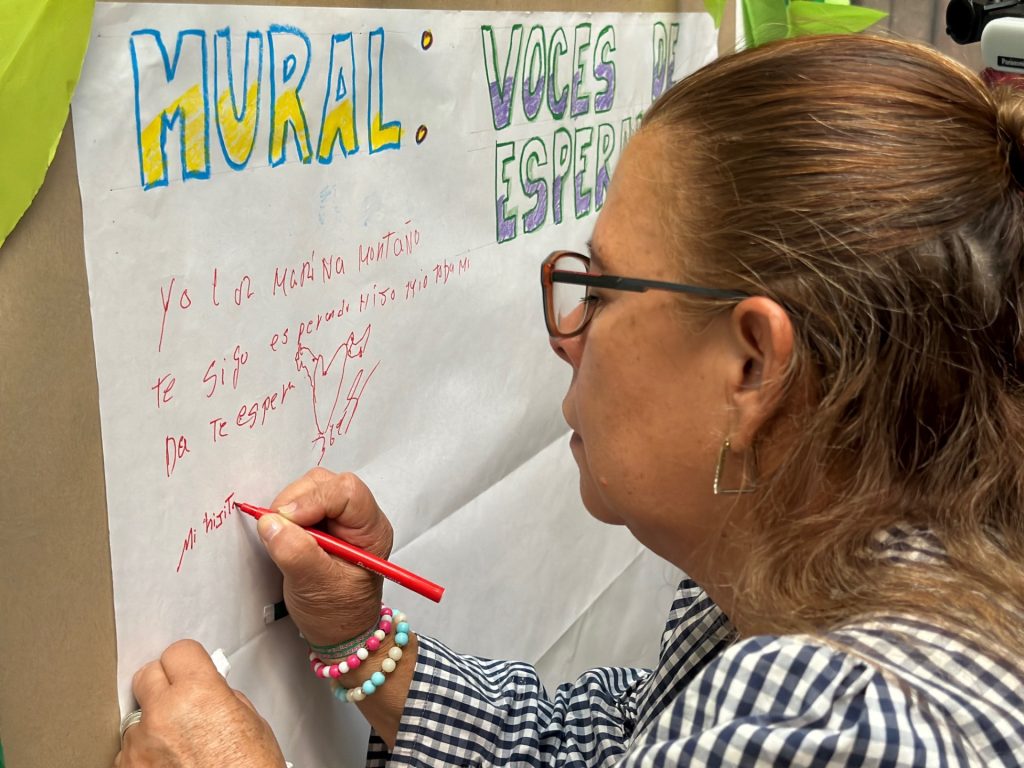 MURAL: VOCES DE
ESPERAN
Yo loz MariNa Montaño
Te sigo esperando Hijo mio toda Mi
Da Te espera
Mi hijita